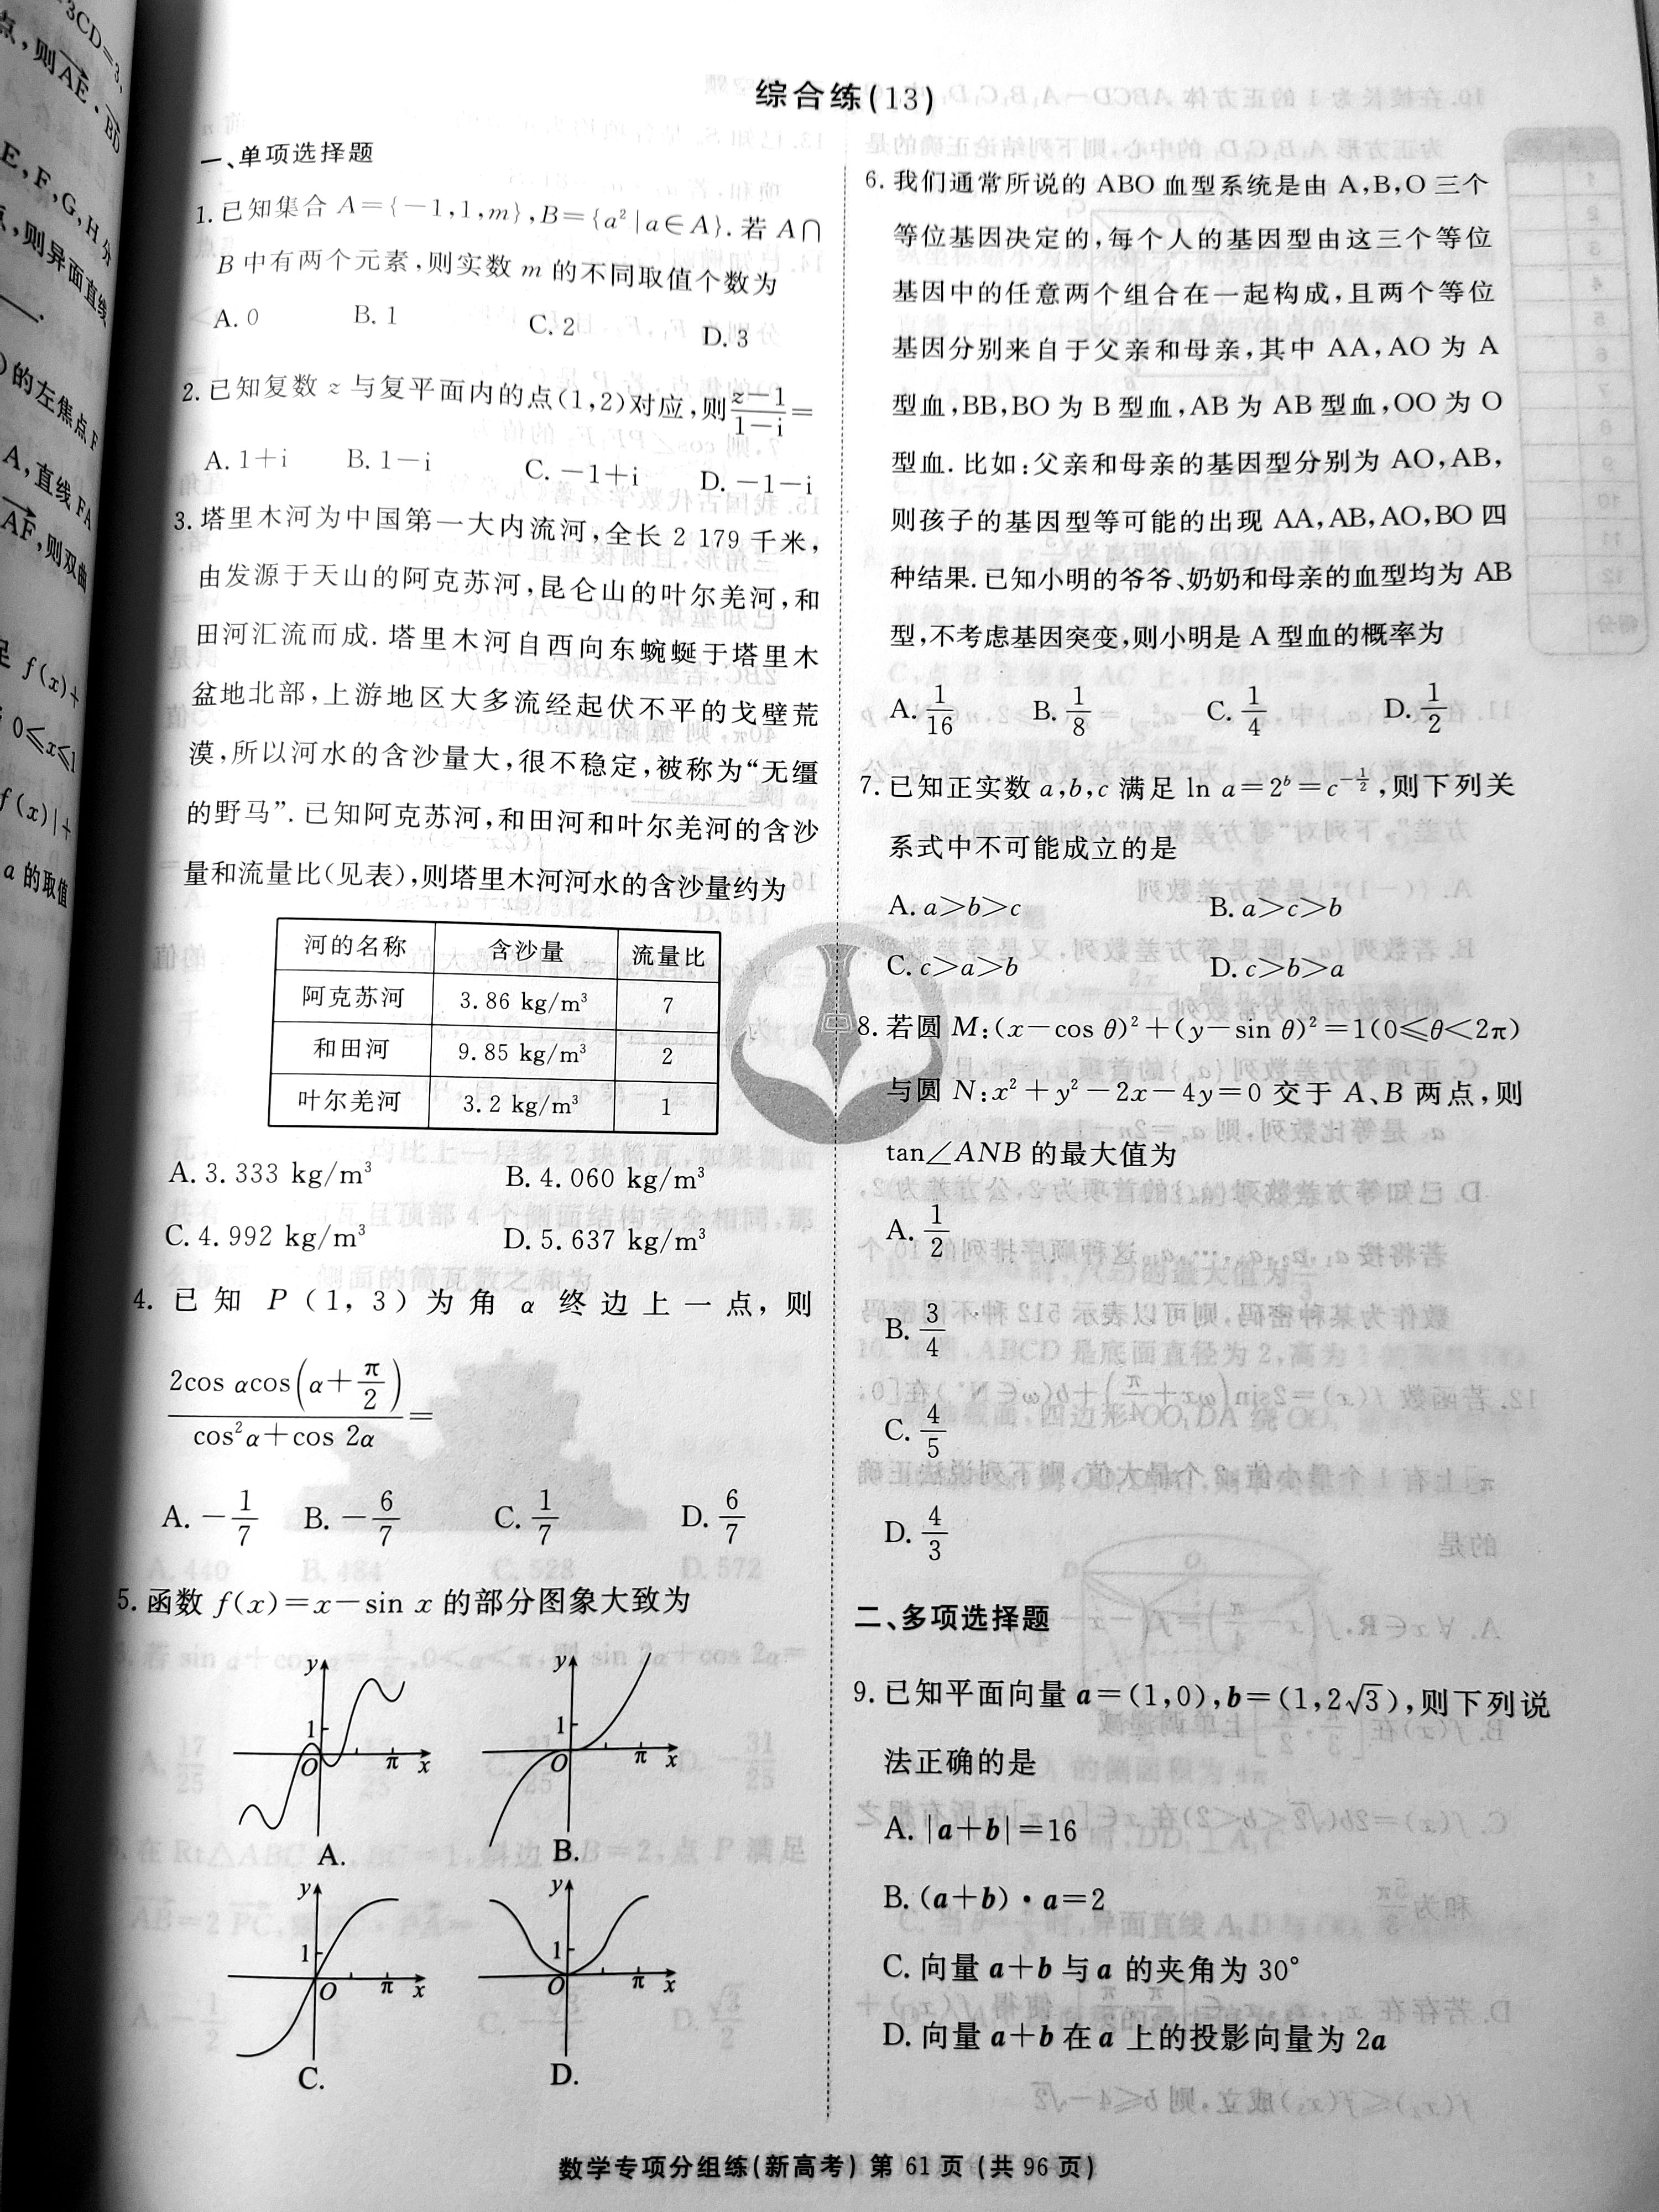 3CD=3,
点,则AE·BD
E,F,G,H分
点,则异面直线
)的左焦点F
A,直线FA
AF,则双曲
足 f(x)+
0≤x≤1
f(x)|+
a 的取值
综合练(13)
一、单项选择题
1.已知集合 A={-1,1,m},B={a²|a∈A}.若 A∩
B 中有两个元素,则实数 m 的不同取值个数为
A.0 B.1 C.2 D.3
2.已知复数 z 与复平面内的点(1,2)对应,则(z-1)/(1-i)=
A.1+i B.1-i C.-1+i D.-1-i
3.塔里木河为中国第一大内流河,全长 2 179 千米,
由发源于天山的阿克苏河,昆仑山的叶尔羌河,和
田河汇流而成.塔里木河自西向东蜿蜒于塔里木
盆地北部,上游地区大多流经起伏不平的戈壁荒
漠,所以河水的含沙量大,很不稳定,被称为“无缰
的野马”.已知阿克苏河,和田河和叶尔羌河的含沙
量和流量比(见表),则塔里木河河水的含沙量约为
河的名称 含沙量 流量比
阿克苏河 3.86 kg/m³ 7
和田河 9.85 kg/m³ 2
叶尔羌河 3.2 kg/m³ 1
A.3.333 kg/m³ B.4.060 kg/m³
C.4.992 kg/m³ D.5.637 kg/m³
4.已知 P(1,3)为角 α 终边上一点,则
2cos αcos(α+π/2)
cos²α+cos 2α =
A.-1/7 B.-6/7 C.1/7 D.6/7
5.函数 f(x)=x-sin x 的部分图象大致为
y 1 O π x
A.
y 1 O π x
B.
y 1 O π x
C.
y 1 O π x
D.
6.我们通常所说的 ABO 血型系统是由 A,B,O 三个
等位基因决定的,每个人的基因型由这三个等位
基因中的任意两个组合在一起构成,且两个等位
基因分别来自于父亲和母亲,其中 AA,AO 为 A
型血,BB,BO 为 B 型血,AB 为 AB 型血,OO 为 O
型血.比如:父亲和母亲的基因型分别为 AO,AB,
则孩子的基因型等可能的出现 AA,AB,AO,BO 四
种结果.已知小明的爷爷、奶奶和母亲的血型均为 AB
型,不考虑基因突变,则小明是 A 型血的概率为
A.1/16 B.1/8 C.1/4 D.1/2
7.已知正实数 a,b,c 满足 ln a=2ᵇ=c^(-1/2),则下列关
系式中不可能成立的是
A.a>b>c B.a>c>b
C.c>a>b D.c>b>a
8.若圆 M:(x-cos θ)²+(y-sin θ)²=1(0≤θ<2π)
与圆 N:x²+y²-2x-4y=0 交于 A、B 两点,则
tan∠ANB 的最大值为
A.1/2
B.3/4
C.4/5
D.4/3
二、多项选择题
9.已知平面向量 a=(1,0),b=(1,2√3),则下列说
法正确的是
A.|a+b|=16
B.(a+b)·a=2
C.向量 a+b 与 a 的夹角为 30°
D.向量 a+b 在 a 上的投影向量为 2a
数学专项分组练(新高考) 第 61 页 (共 96 页)